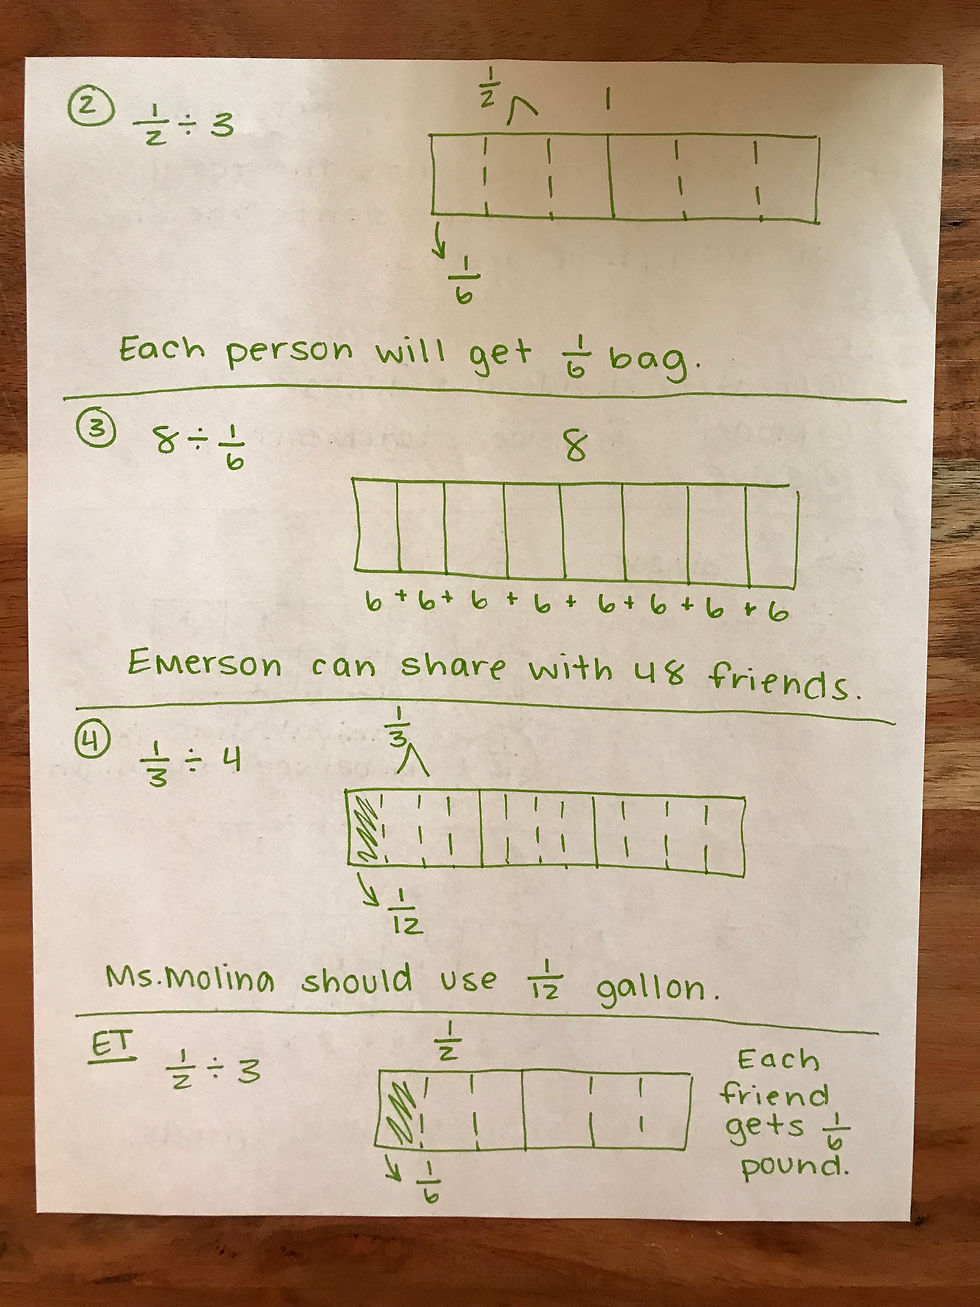 ② 1/2 ÷ 3
1/2 1
1/6
Each person will get 1/6 bag.
③ 8 ÷ 1/6
8
6 + 6 + 6 + 6 + 6 + 6 + 6 + 6
Emerson can share with 48 friends.
④ 1/3 ÷ 4
1/3
1/12
Ms. Molina should use 1/12 gallon.
ET 1/2 ÷ 3
1/2
1/6
Each
friend
gets 1/6
pound.